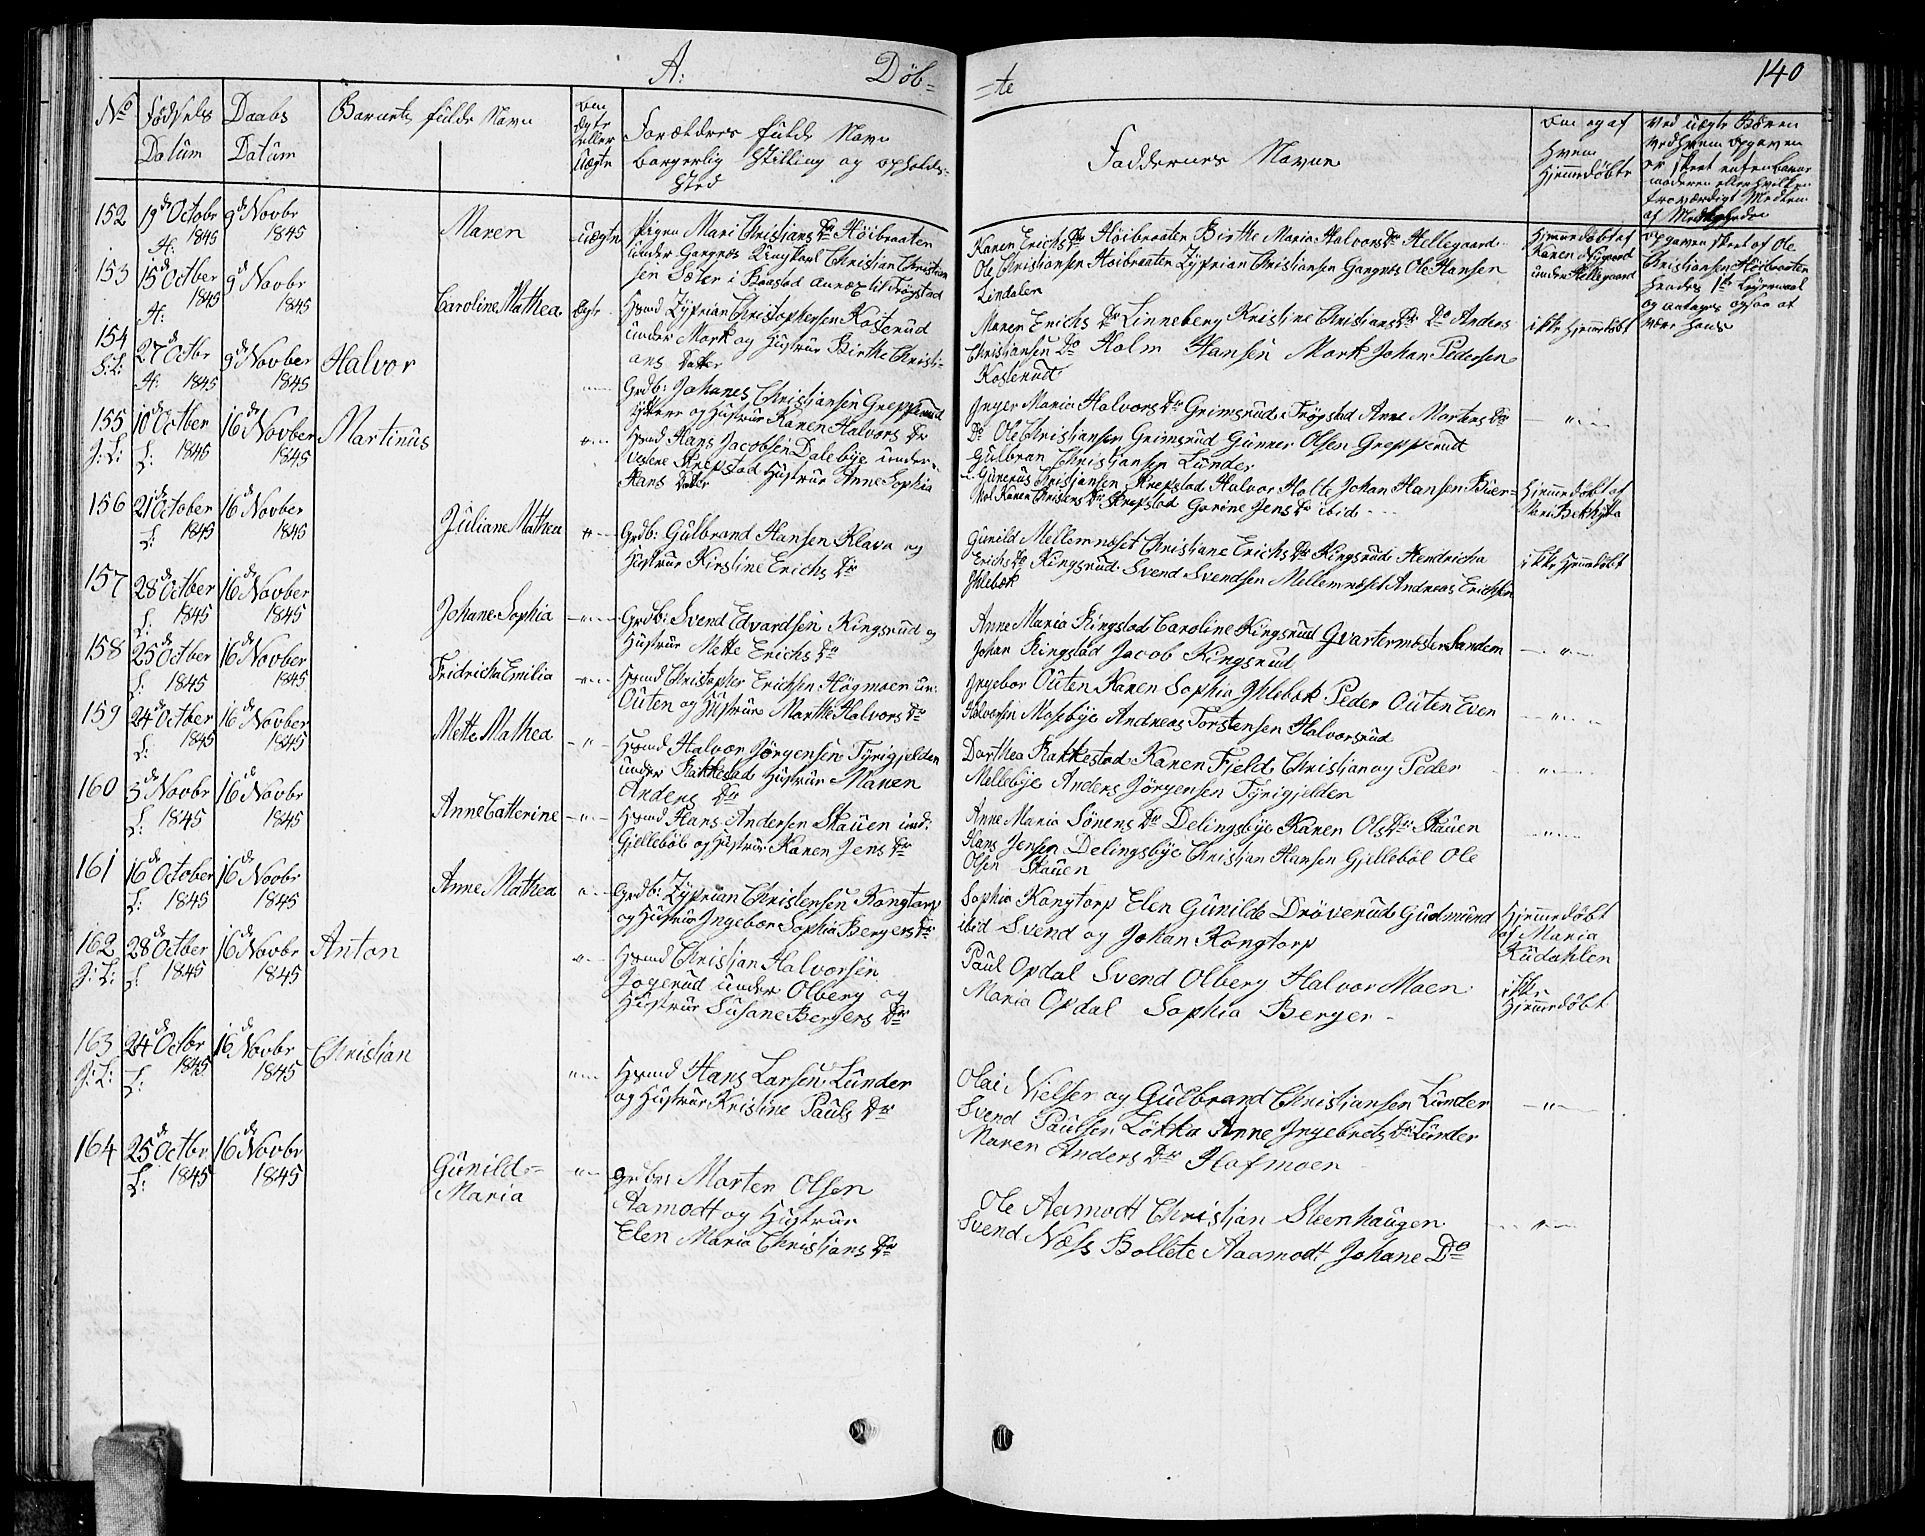 A: Döb=
=te 140
No Födsels Datum Daabs Datum Barnets fulde Navn Om ægte eller uægte Forældres fulde Navn borgerlig Stilling og opholds=sted
Faddernes Navne
Om og af hvem hjemmedöbt
Ved uægte Börn
152 19de Octobr 1845 9de Novbr 1845 Maren uægte Pigen Mari Christians Dtr Höibraaten
under Gangnæs Ungkarl Christian Christian
sen Sæter i Baastad Annex til Trögstad
Karen Erichs Dtr Höibraaten Birthe Maria Halvors Dtr Hellegaard
Ole Christiansen Höibraaten Zyprian Christiansen Gangnæs Ole Hansen
Lindalen
Hjemmedöbt af Karen Nygaard under Hellegaard
Opgaven skeet af Ole Christiansen Höibraaten
153 15de October 1845 9de Novbr 1845 Caroline Mathea ægte Huusmd Zyprian Christophersen Kosterud
under Mork og Hustrue Birthe Christi=
ans Datter
Maren Erichs Dtr Linneberg Kristine Christians Dtr Do Anders
Christiansen Do Holm Hansen Mork Johan Pedersen
Kosterud
ikke hjemmedöbt
154 27de Octbr 1845 9de November 1845 Halvor Grdb: Johanes Christiansen Grepperud
og Hustrue Karen Halvors Dtr
Inger Maria Halvors Dtr Grimsrud i Trögstad Anne Martens Dtr
Do Ole Christiansen Grimsrud Gunner Olsen Grepperud
Gulbran Christiansen Lunder
155 10de October 1845 16de November 1845 Martinus Huusmd Hans Jacobsen Dalebye under
Vestre Krepstad Hustrue Anne Sophia
Hans Datter
Gunerus Christiansen Krepstad Halvor Holte Johan Hansen Buer
Karen Christens Dtr Krepstad Gorine Jens Dtr ibid
Hjemmedöbt af Mari Bekhytta
156 21de October 1845 16de November 1845 Juliane Mathea Grdb: Gulbrand Hansen Klava og
Hustrue Kirstine Erichs Dtr
Gunild Mellemnæset Christiane Erichs Dtr Kingsrud Hendricha
Erichs Dtr Kingsrud Svend Svendsen Mellemnæset Andreas Erichsen
Ihlebæk
ikke hjemmedöbt
157 28de October 1845 16de November 1845 Johane Sophia Grdb: Svend Edvardsen Kingsrud og
Hustrue Mette Erichs Dtr
Anne Maria Ringstad Caroline Kingsrud Qvartermester Sandem
Johan Ringstad Jacob Kingsrud
158 25de October 1845 16de November 1845 Fridricha Emilia Huusmd Christopher Erichsen Högmoen un:
Outen og Hustrue Marthe Halvors Dtr
Ingebor Outen Karen Sophia Ihlebæk Peder Outen Even
Halvorsen Mosebye Andreas Torstensen Halvorsrud
159 24de October 1845 16de Novbr 1845 Mette Mathea Huusmd Halvor Jörgensen Tyrigjelden
under Rakkestad Hustrue Maren
Anders Dtr
Dorthea Rakkestad Karen Fjeld Christian og Peder
Mellebye Anders Jörgensen Tyrigjelden
160 3de Novbr 1845 16de Novbr 1845 Anne Catterine Huusmd Hans Andersen Skauen und:
Gjilleböl og Hustrue Karen Jens Dtr
Anne Maria Sörens Dtr Delingsbye Karen Ols Dtr Skauen
Hans Jensen Delingsbye Christian Hansen Gjilleböl Ole
Olsen Skauen
161 16de October 1845 16de Novbr 1845 Anne Mathea Grdb: Zyprian Christensen Kongtorp
og Hustrue Ingebor Sophia Bergers Dtr
Sophia Kongtorp Elen Gunilde Dröverud Gudmund
ibid Svend og Johan Kongtorp
Hjemmedöbt af Maria Kudahlen
162 28de October 1845 16de Novbr 1845 Anton Huusmd Christian Halvorsen
Jogerud under Olberg og
Hustrue Susane Bergers Dtr
Paul Opdal Svend Olberg Halvor Moen
Maria Opdal Sophia Berger
ikke Hjemmedöbt
163 24de Octbr 1845 16de Novbr 1845 Christian Huusmd Hans Larsen Lunder
og Hustrue Kristine Pauls Dtr
Olai Nielsen og Gulbrand Christiansen Lunder
Svend Paulsen Lökka Anne Ingebrets Dtr Lunder
Maren Anders Dtr Hafmoen
164 25de Octbr 1845 16de Novbr 1845 Gunild=
Maria Grdbr Morten Olsen
Aamodt og Hustrue
Elen Maria Christians Dtr
Ole Aamodt Christian Steenhaugen
Svend Næss Bollete Aaamodt Johane Do